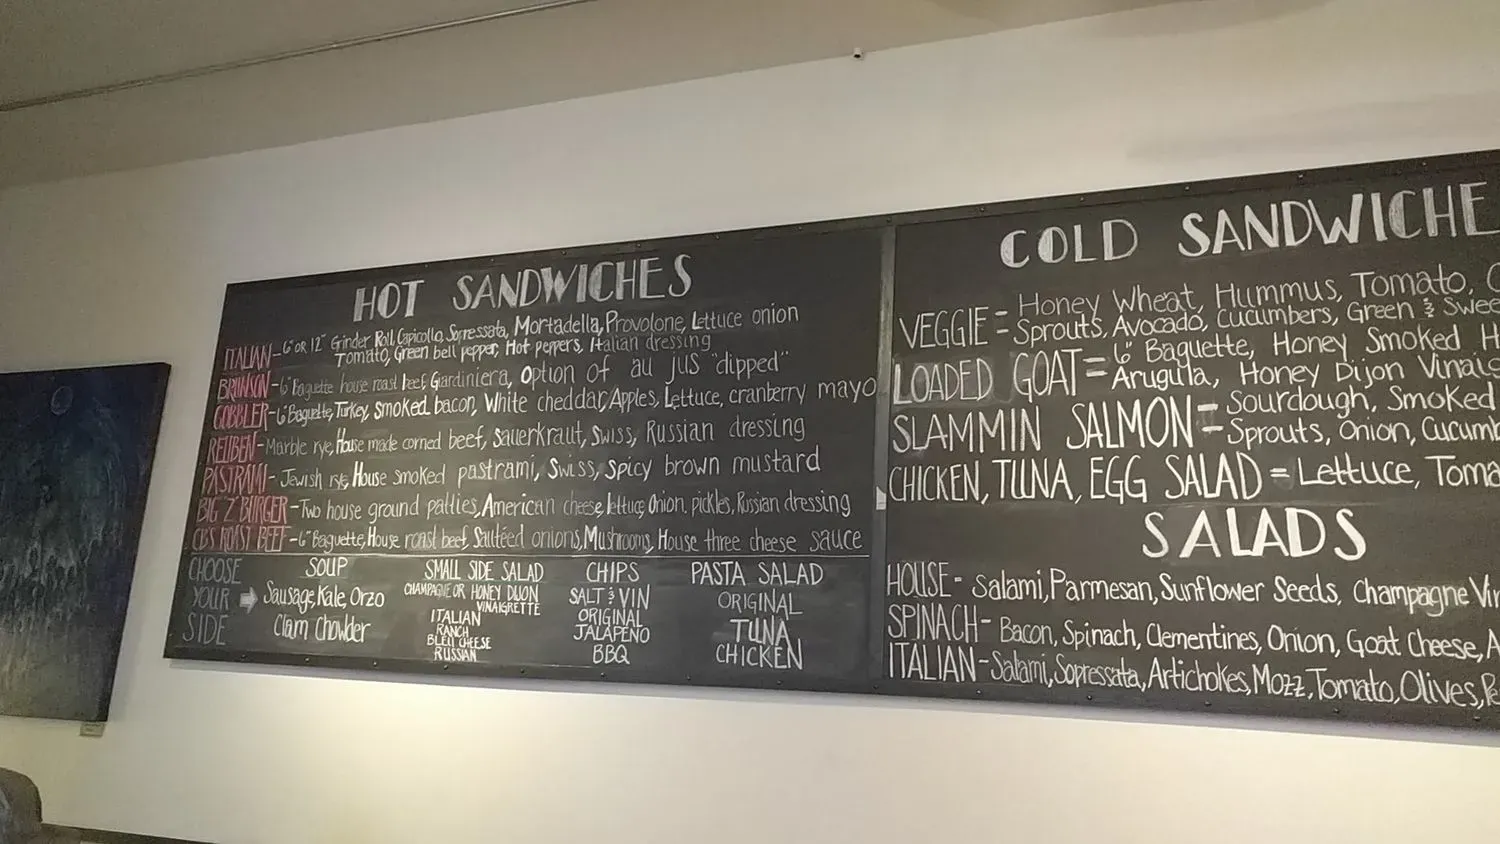 HOT SANDWICHES
ITALIAN - 6" OR 12" Grinder Roll, Capicollo, Sopressata, Mortadella, Provolone, Lettuce onion
Tomato, Green bell pepper, Hot peppers, Italian dressing
BRUNSON - 6" Baguette house roast beef, Giardiniera, option of au jus "dipped"
GOBBLER - 6" Baguette, Turkey, smoked bacon, White cheddar, Apples, Lettuce, cranberry mayo
REUBEN - Marble rye, House made corned beef, Sauerkraut, Swiss, Russian dressing
PASTRAMI - Jewish rye, House smoked pastrami, Swiss, Spicy brown mustard
BIG Z BURGER - Two house ground patties, American cheese, lettuce, Onion, pickles, Russian dressing
CB'S ROAST BEEF - 6" Baguette, House roast beef, Sautéed onions, Mushrooms, House three cheese sauce
CHOOSE YOUR SIDE
SOUP
Sausage, Kale, Orzo
Clam Chowder
SMALL SIDE SALAD
CHAMPAGNE OR HONEY DIJON
VINAIGRETTE
ITALIAN
RANCH
BLEU CHEESE
RUSSIAN
CHIPS
SALT & VIN
ORIGINAL
JALAPEÑO
BBQ
PASTA SALAD
ORIGINAL
TUNA
CHICKEN
COLD SANDWICHE
VEGGIE = Honey Wheat, Hummus, Tomato,
Sprouts, Avocado, Cucumbers, Green & Swee
LOADED GOAT = 6" Baguette, Honey Smoked H
Arugula, Honey Dijon Vinaig
SLAMMIN SALMON = Sourdough, Smoked
Sprouts, Onion, Cucumb
CHICKEN, TUNA, EGG SALAD = Lettuce, Toma
SALADS
HOUSE - Salami, Parmesan, Sunflower Seeds, Champagne Vin
SPINACH - Bacon, Spinach, Clementines, Onion, Goat Cheese, A
ITALIAN - Salami, Sopressata, Artichokes, Mozz, Tomato, Olives, Pe